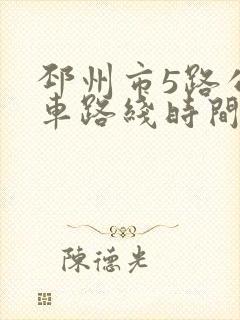 邳州市5路公
車路綫時間
陳德光